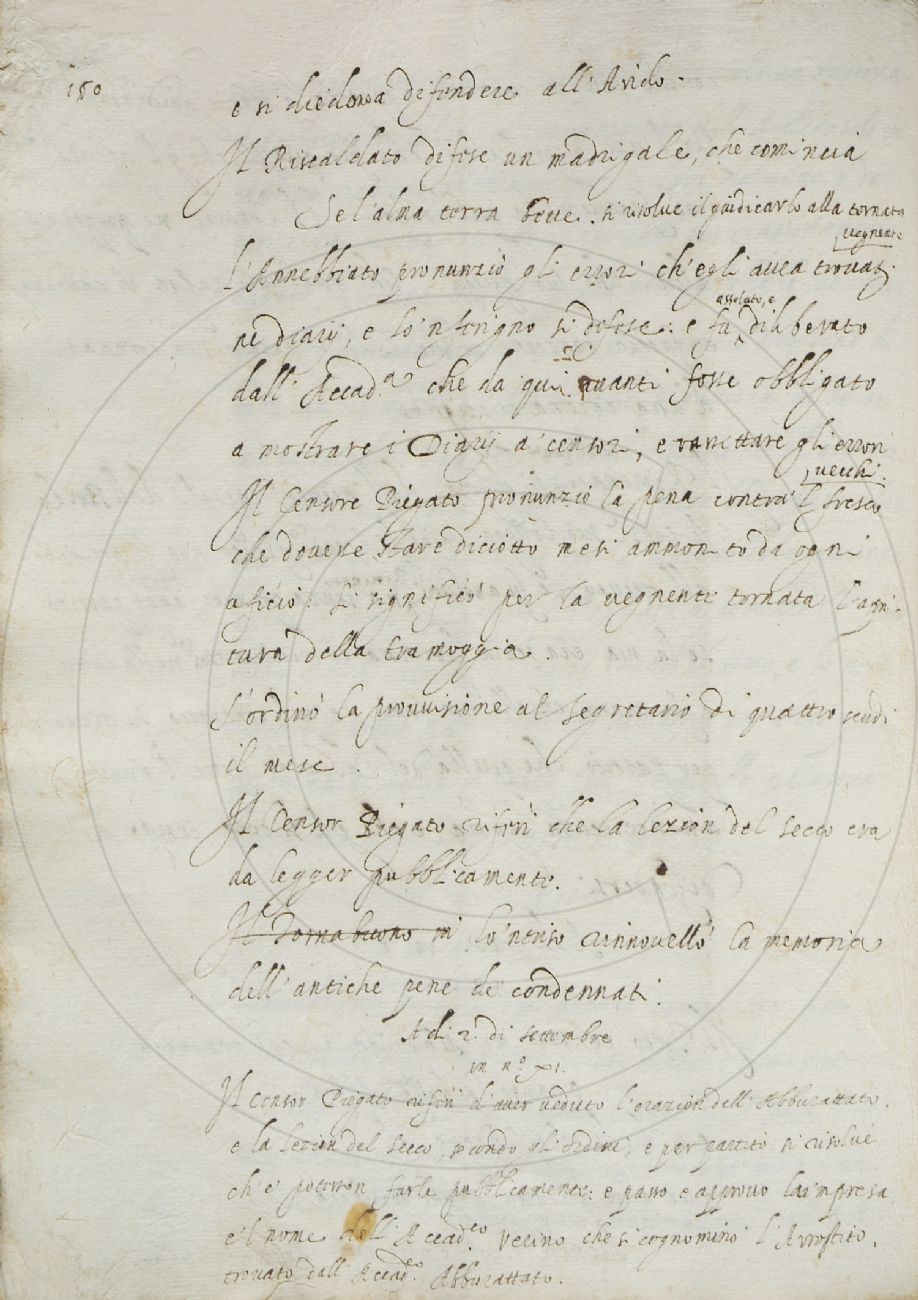 150
e si diedono difendere all'Arido.
Il Riscaldato difese un madrigale, che comincia
Se l'alma terra si risolve il giudicarlo alla tornata
vegnente
L'Annebbiato pronunziò gli errori ch'egli avea trovati
ne diarij, e lo'nferigno si difese: e fu diliberato
assoluto, e
dall'Accad.a che da qui avanti fosse obbligato
a mostrare i Diarij a' censori, e rassettare gli errori
vecchi.
Il Censore Piegato pronunziò la pena contra
che dovere stare diciotto mesi ammonito da ogni
uficio: si significò per la vegnente tornata
tura della tramoggia.
S'ordinò la provvisione al segretario di quattro scudi
il mese.
Il Censor Piegato riferì che la lezion del secco era
da legger pubblicamente.
Il lo'ntriso rinnovellò la memoria
dell'antiche pene de' condennati.
A dì 2. di settembre
in n.o XI.
Il Censor Piegato riferì d'aver veduto l'orazion dell'Abburattato,
e la lezion del secco, secondo gli ordini, e per partito si risolvé
ch'e' potesson farle pubblicamente: e passò e approvò la'mpresa
e'l nome dell'Accad.co Verino che si cognominò l'Arrostito,
trovato dall'Accad.co Abburattato.